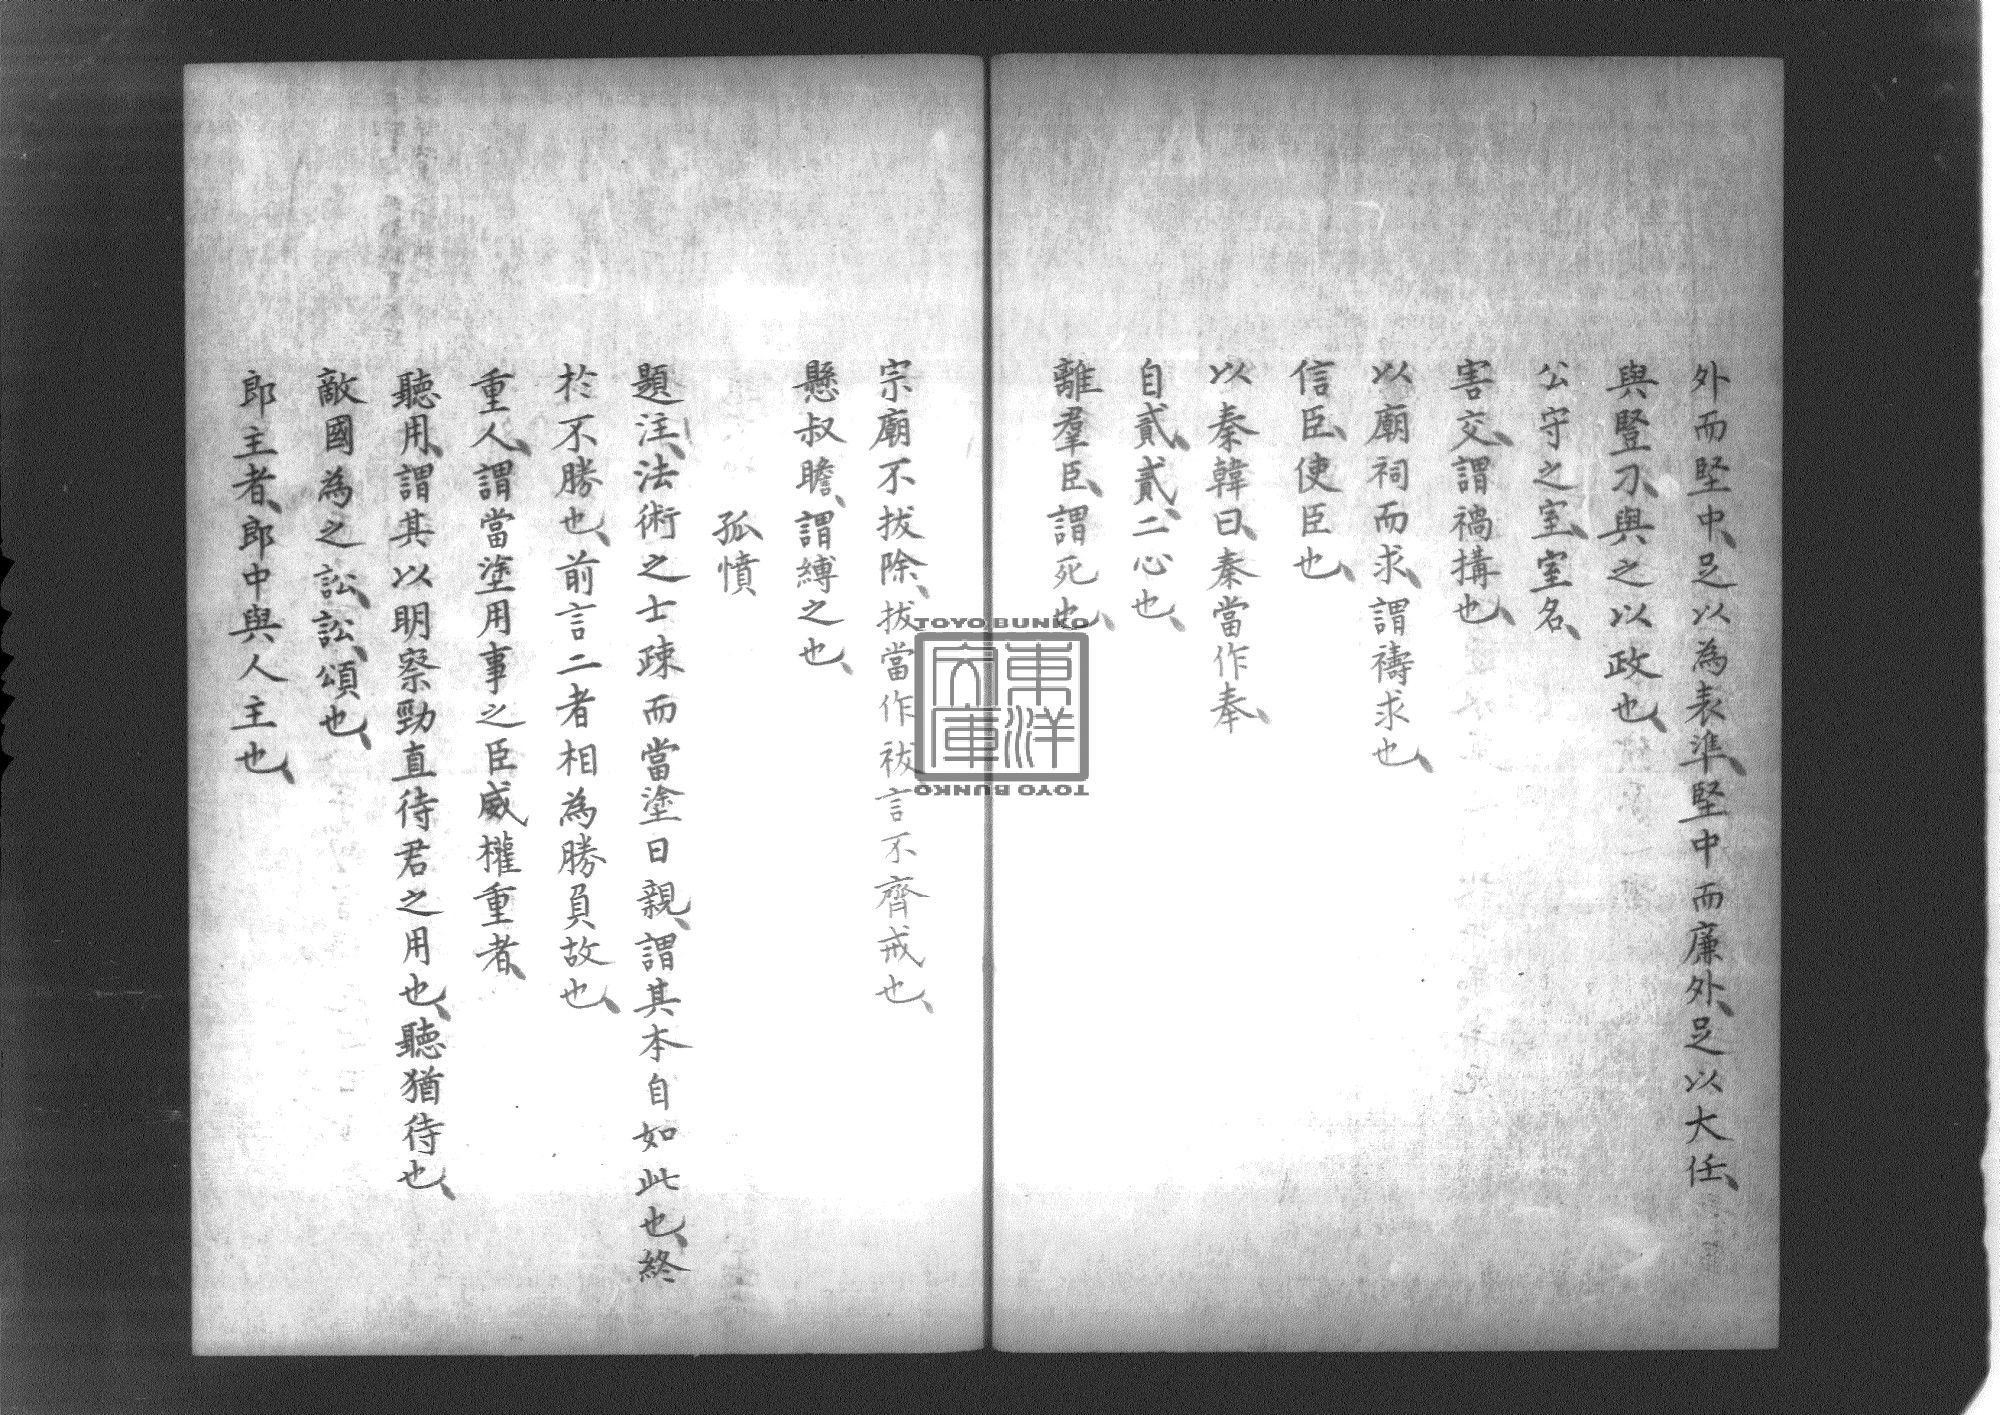 外而堅中、足以為表準、堅中而廉外、足以大任、
與豎刁、與之以政也、
公守之室、室名、
害交、謂禍搆也、
以廟祠而求、謂禱求也、
信臣、使臣也、
以秦韓曰、秦當作奉、
自貳、貳、二心也、
離羣臣、謂死也、
宗廟不拔除、拔當作祓言不齊戒也、
懸叔瞻、謂縛之也、
孤憤
題注、法術之士疎而當塗日親、謂其本自如此也、終
於不勝也、前言二者相為勝負故也、
重人、謂當塗用事之臣威權重者、
聽用、謂其以明察勁直待君之用也、聽猶待也、
敵國為之訟、訟、頌也、
郎主者、郎中與人主也、
TOYO BUNKO
東洋文庫
TOYO BUNKO